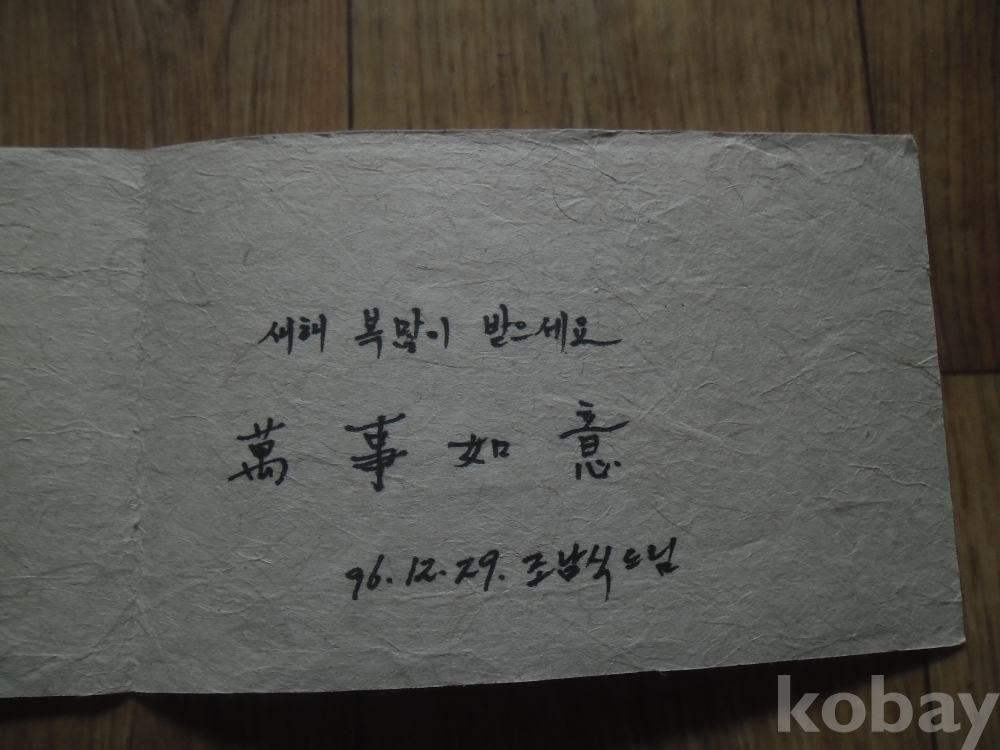 새해 복많이 받으세요
萬事如意
96.12.29. 조남식드님
kobay